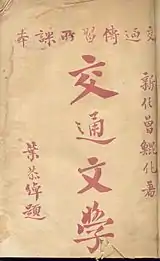 交通傳習所課本
新化曾鯤化著
交通文学
葉恭綽題